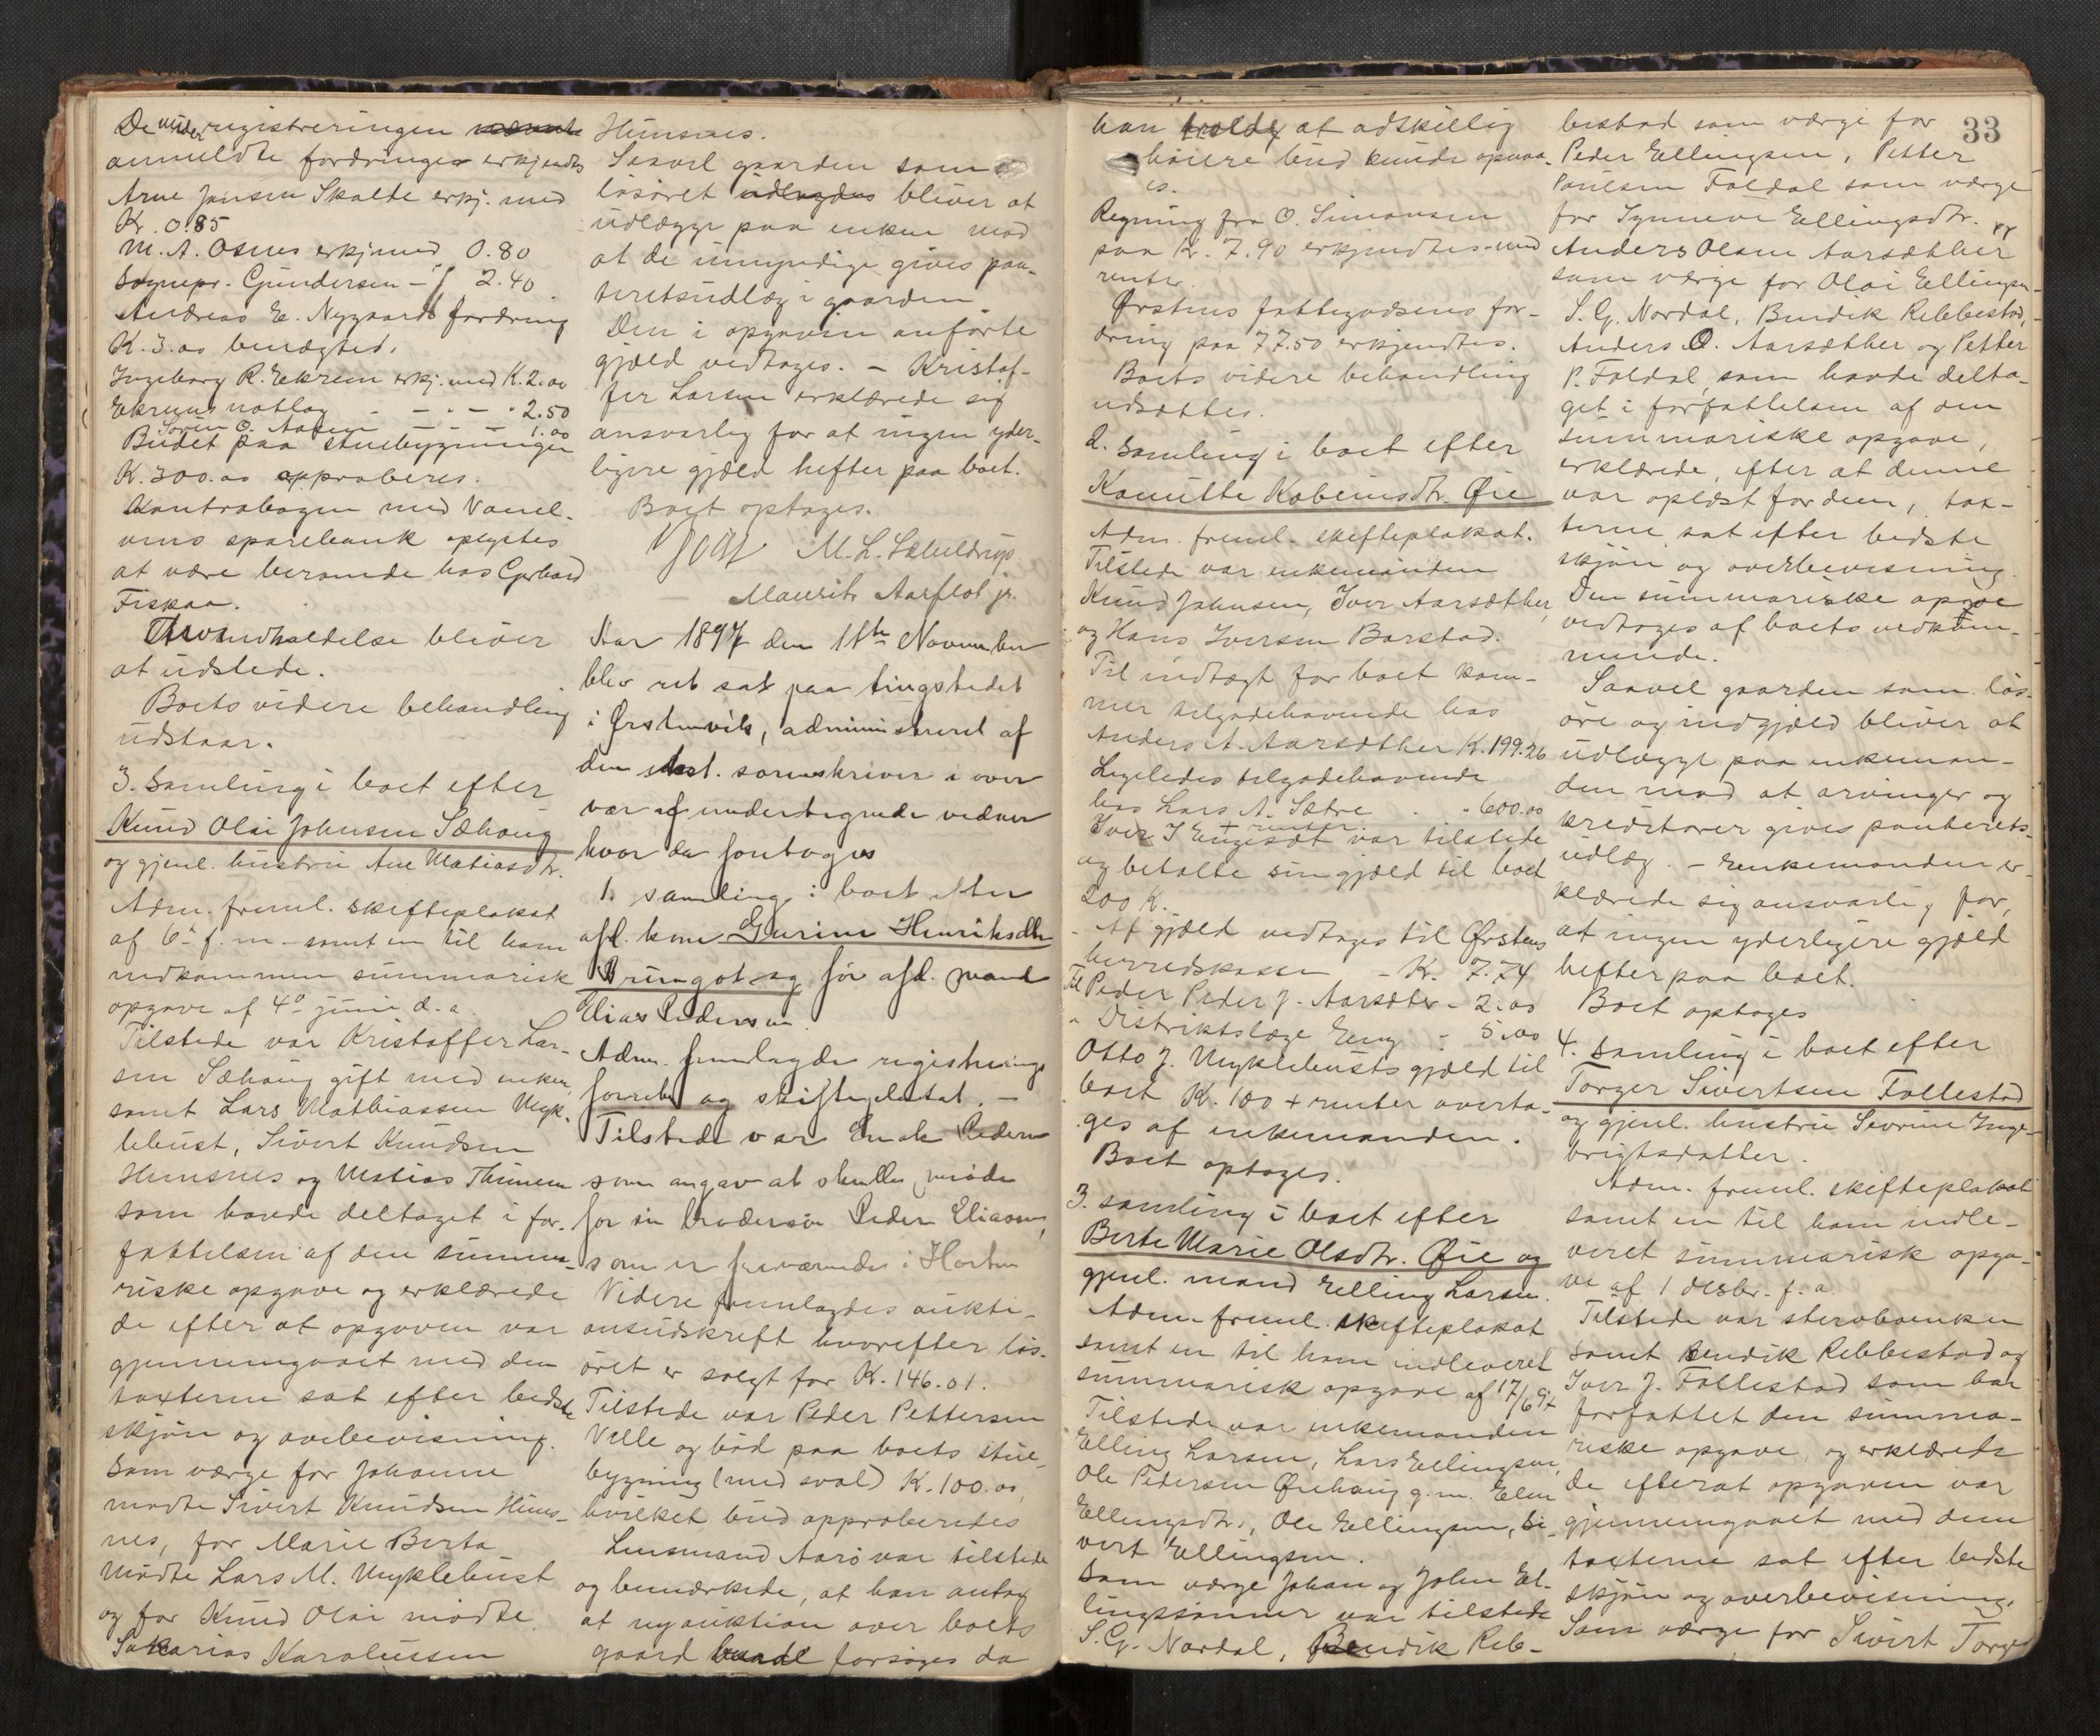 De under registreringen
anmeldte fordringer erkjendtes
Arne Jonsen Skalde erkj. med
Kr. 0.85
M. A. Osnes erkj med 0.80
Sognepr. Gundersen - 2.40
Andreas E. Nygaards fordring
K. 3.00 benægted.
Ingeborg R. Ekrem erkj. med K. 2.00
Ekrems notlag - - - - 2.50
Søren O. Aasen - - - 1.00
Budet paa stuebygningen
K. 300.00 approberes.
Kontrabogen med Vanel-
vens sparebank oplystes
at være beroende hos Gerhard
Fiskaa.
indkaldelse bliver
at udstede.
Boets videre behandling
udstaar.
3. Samling i boet efter
Knud Olai Johnsen Sæhaug
og gjenl. hustru Ane Matiasdtr.
Adm. freml. skifteplakat
af 6te f. m. samt en til ham
indkommen summarisk
opgave af 4de juni d. a.
Tilstede var Kristoffer Lar-
sen Sæhaug gift med enken,
samt Lars Mathiassen Myk-
lebust, Sivert Knudsen
Humsnes og Matias Thunem
som havde deltaget i for-
fattelsen af den summa-
riske opgave og erklærede
de efter at opgaven var
gjennemgaaet med dem
taxterne sat efter bedste
skjøn og overbevisning.
Som værge for Johanne
mødte Sivert Knudsen Hums-
nes, for Marie Berta
mødte Lars M. Myklebust
og for Knud Olai mødte
Sakarias Karolussen
Humsnes.
Saavel gaarden som
løsøret udlagdes bliver at
udlægge paa enken mod
at de umyndige gives pan-
teretsudlæg i gaarden.
Den i opgaven anførte
gjæld vedtages. - Kristof-
fer Larsen erklærede sig
ansvarlig for at ingen yder-
ligere gjæld hefter paa boet.
Boet optages.
M. L.
Maurits Aarflot jr.
Aar 1897 den 11te November
blev ret sat paa tingstedet
i Ørstenvik, administreret af
den konst. sorenskriver i over
vær af undertegnede vidner
hvor da foretoges
1. samling i boet efter
afd. kone Gurine Henriksdtr
Brungot og før afd. mand
Elias Pedersen.
Adm. fremlagde registrerings
forretn og skifteplakat. -
Tilstede var Enok Pedersen
som angav at skulle møde
for sin brodersøn Peder Eliassen,
som er fraværende i Horten
Videre fremlagdes aukti-
onsudskrift hvorefter løs-
øret er solgt for K. 146.01.
Tilstede var Peder Pettersen
Velle og bød paa boets stue-
bygning (med sval) K. 100.00,
hvilket bud approberedes
Lensmand Aarø var tilstede
og bemærkede, at han antog
at ny auktion over boets
gaard burde forsøges da
33
han trolde at adskillig
høiere bud kunde opnaa-
es.
Regning fra O. Simonsen
paa Kr. 7.90 erkjendtes med
renter.
Ørstens fattigvæsens for-
dring paa 77.50 erkjendtes.
Boets videre behandling
udsættes.
2. Samling i boet efter
Kamitte Kobeinsdtr. Øie
Adm. freml. skifteplakat.
Tilstede var enkemanden
Knud Johnsen, Iver Aarsæther,
og Hans Iversen Barstad.
Til indtægt for boet kom-
mer tilgodehavende hos
Anders A. Aarsæther K. 199.26
Ligeledes tilgodehavende
hos Lars A. Sætre . . 600.00
+ renter.
Iver J Engeset var tilstede
og betalte sin gjæld til boet
200 K.
Af gjæld vedtages til Ørstens
herredskasse - K. 7.74
Til Peder Peder J. Aarsæter - 2.00
" Distriktslæge Eng - 5.00
Otto J. Myklebusts gjæld til
boet K. 100 + renter overta-
ges af enkemanden.
Boet optages.
3. samling i boet efter
Berte Marie Olsdtr. Øie og
gjenl. mand Elling Larsen.
Adm. freml. skifteplakat
samt en til ham indleveret
summarisk opgave af 17/6 97
Tilstede var enkemanden
Elling Larsen, Lars Ellingsen,
Ole Pedersen Øiehaug g. m. Elen
Ellingsdtr., Ole Ellingsen, Si-
vert Ellingsen.
Som værge Johan og John El-
lingssønner var tilstede
S. G. Nordal, Bendik Reb-
bestad som værge for
Peder Ellingsen, Petter
Poulsen Foldal som værge
for Synneve Ellingsdtr. og
Anders Olsen Aarsæther
som værge for Olai Ellingsen.
S. G. Nordal, Bendik Rebbestad,
Anders O. Aarsæther og Petter
P. Foldal som havde delta-
get i forfattelsen af den
summariske opgave,
erklærede, efter at denne
var oplæst for dem, tax-
terne sat efter bedste
skjøn og overbevisning.
Den summariske opgave
vedtoges af boets vedkom-
mende.
Saavel gaarden som løs-
øre og indgjæld bliver at
udlægge paa enkeman-
den mod at arvinger og
kreditorer gives panterets-
udlæg. - Enkemanden er-
klærede sig ansvarlig for,
at ingen yderligere gjæld
hefter paa boet.
Boet optages
4. samling i boet efter
Torger Sivertsen Follestad
og gjenl. hustru Sevrine Inge-
brigtsdatter.
Adm. freml. skifteplakat
samt en til ham indle-
veret summarisk opga-
ve af 1 desbr. f. a.
Tilstede var stervboenken
samt Bendik Rebbestad og
Iver J. Follestad som har
forfattet den summa-
riske opgave, og erklærede
de efterat opgaven var
gjennemgaaet med dem
taxterne sat efter bedste
skjøn og overbevisning.
Som værge for Sivert Torger